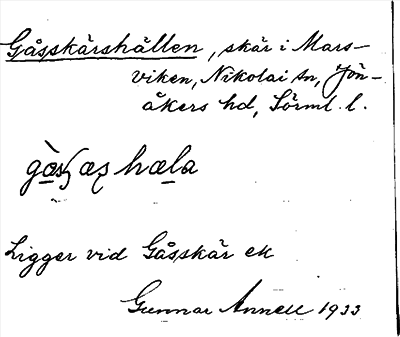 Gåsskärshällen, skär i Mars-
viken, Nikolai sn, Jön-
åkers hd, Sörml. l.
Ligger vid Gåsskär ek
Gunnar Annell 1933